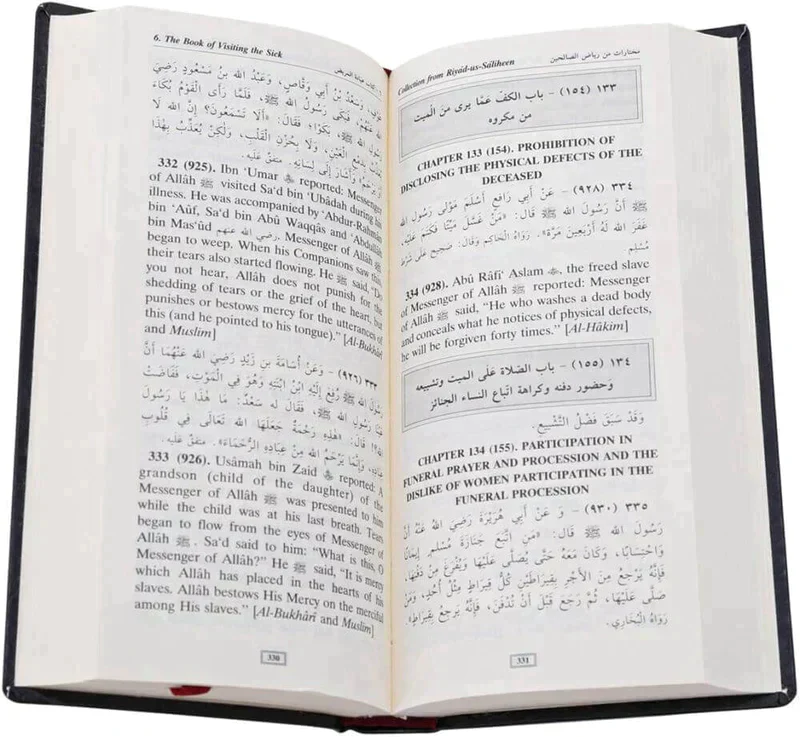 6. The Book of Visiting the Sick
عَوْفٍ، وَسَعْدُ بْنُ أَبِي وَقَّاصٍ، وَعَبْدُ اللهِ بْنُ مَسْعُودٍ رَضِيَ
اللهُ عَنْهُمْ، فَبَكَى رَسُولُ اللهِ ﷺ، فَلَمَّا رَأَى الْقَوْمُ بُكَاءَ
رَسُولِ اللهِ ﷺ، بَكَوْا؛ فَقَالَ: «أَلَا تَسْمَعُونَ؟ إِنَّ اللهَ لَا
يُعَذِّبُ بِدَمْعِ الْعَيْنِ، وَلَا بِحُزْنِ الْقَلْبِ، وَلَكِنْ يُعَذِّبُ بِهَذَا
أَوْ يَرْحَمُ» وَأَشَارَ إِلَى لِسَانِهِ. متفقٌ عليه.
332 (925). Ibn ‘Umar reported: Messenger
of Allâh ﷺ visited Sa‘d bin ‘Ubâdah during his
illness. He was accompanied by ‘Abdur-Rahmân
bin ‘Aûf, Sa‘d bin Abû Waqqâs and ‘Abdullâh
bin Mas‘ûd رضي الله عنهم. Messenger of Allâh ﷺ
began to weep. When his Companions saw this,
their tears also started flowing. He ﷺ said, “Do
you not hear, Allâh does not punish for the
shedding of tears or the grief of the heart, but
punishes or bestows mercy for the utterances of
this (and he pointed to his tongue).” [Al-Bukhârî
and Muslim]
٣٣٣ (٩٢٦) - وَعَنْ أُسَامَةَ بْنِ زَيْدٍ رَضِيَ اللهُ عَنْهُمَا أَنَّ
رَسُولَ اللهِ ﷺ رُفِعَ إِلَيْهِ ابْنُ ابْنَتِهِ وَهُوَ فِي الْمَوْتِ، فَفَاضَتْ
عَيْنَا رَسُولِ اللهِ ﷺ، فَقَالَ له سَعْدٌ: مَا هَذَا يَا رَسُولَ
اللهِ؟! قَالَ: «هَذِهِ رَحْمَةٌ جَعَلَهَا اللهُ تَعَالَى فِي قُلُوبِ
عِبَادِهِ، وَإِنَّمَا يَرْحَمُ اللهُ مِنْ عِبَادِهِ الرُّحَمَاءَ». متفق عليه.
333 (926). Usâmah bin Zaid reported: A
grandson (child of the daughter) of the
Messenger of Allâh ﷺ was presented to him
while the child was at his last breath. Tears
began to flow from the eyes of Messenger of
Allâh ﷺ. Sa‘d said to him: “What is this, O
Messenger of Allâh?” He ﷺ said, “It is mercy
which Allâh has placed in the hearts of his
slaves. Allâh bestows His Mercy on the merciful
among His slaves.” [Al-Bukhârî and Muslim]
330
Collection from Riyâd-us-Sâliheen
مختارات من رياض الصالحين
١٣٣ (١٥٤) - باب الكفّ عمّا يرى من الْميت
من مكروه
CHAPTER 133 (154). PROHIBITION OF
DISCLOSING THE PHYSICAL DEFECTS OF THE
DECEASED
٣٣٤ (٩٢٨) - عَنْ أَبِي رَافِعٍ أَسْلَمَ مَوْلَى رَسُولِ اللهِ
ﷺ أَنَّ رَسُولَ اللهِ ﷺ قَالَ: «مَنْ غَسَّلَ مَيِّتًا فَكَتَمَ عَلَيْهِ،
غَفَرَ اللهُ لَهُ أَرْبَعِينَ مَرَّةً». رَوَاهُ الحَاكم وَقَالَ: صحيح على شرط
مُسْلِمٍ
334 (928). Abû Râfi‘ Aslam, the freed slave
of Messenger of Allâh ﷺ reported: Messenger
of Allâh ﷺ said, “He who washes a dead body
and conceals what he notices of physical defects,
he will be forgiven forty times.” [Al-Hâkim]
١٣٤ (١٥٥) - باب الصّلاة عَلَى الميت وتشييعه
وَحضور دفنه وكراهة اتّباع النساء الجنائز
وَقَدْ سَبَقَ فَضْلُ التَّشْيِيعِ.
CHAPTER 134 (155). PARTICIPATION IN
FUNERAL PRAYER AND PROCESSION AND THE
DISLIKE OF WOMEN PARTICIPATING IN THE
FUNERAL PROCESSION
٣٣٥ (٩٣٠) - وَ عَنْ أَبِي هُرَيْرَةَ رَضِيَ اللهُ عَنْهُ أَنَّ
رَسُولَ اللهِ ﷺ قَالَ: «مَنِ اتَّبَعَ جَنَازَةَ مُسْلِمٍ إِيمَانًا
وَاحْتِسَابًا، وَكَانَ مَعَهُ حَتَّى يُصَلَّى عَلَيْهَا وَيُفْرَغَ مِنْ دَفْنِهَا،
فَإِنَّهُ يَرْجِعُ مِنَ الأَجْرِ بِقِيرَاطَيْنِ كُلُّ قِيرَاطٍ مِثْلُ أُحُدٍ، وَمَنْ
صَلَّى عَلَيْهَا، ثُمَّ رَجَعَ قَبْلَ أَنْ تُدْفَنَ، فَإِنَّهُ يَرْجِعُ بِقِيرَاطٍ».
رَوَاهُ الْبُخَارِي.
331